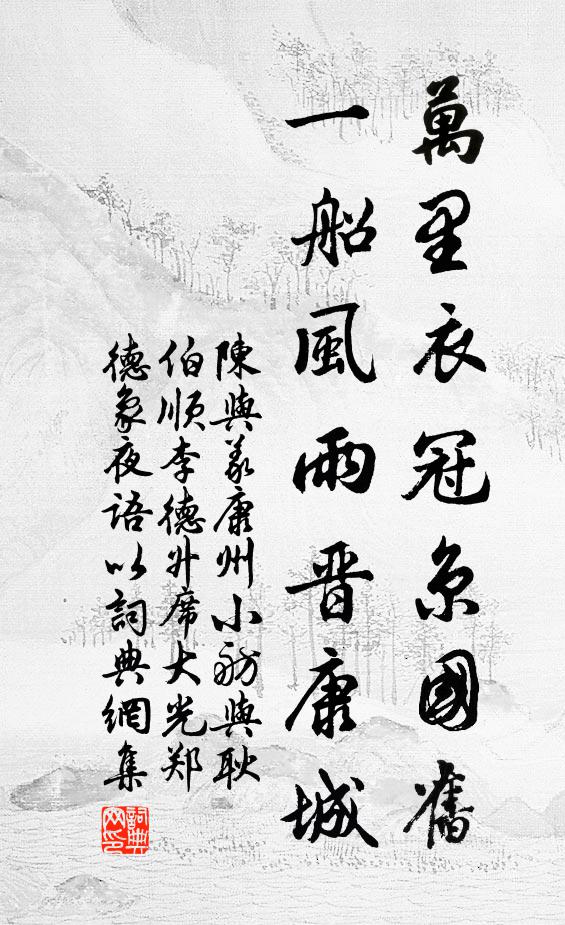 萬里衣冠京國舊
一船風雨晋康城
陳與義康州小舫與耿
伯順李德升席大光郑
德象夜語以詞典網集
詞典网印